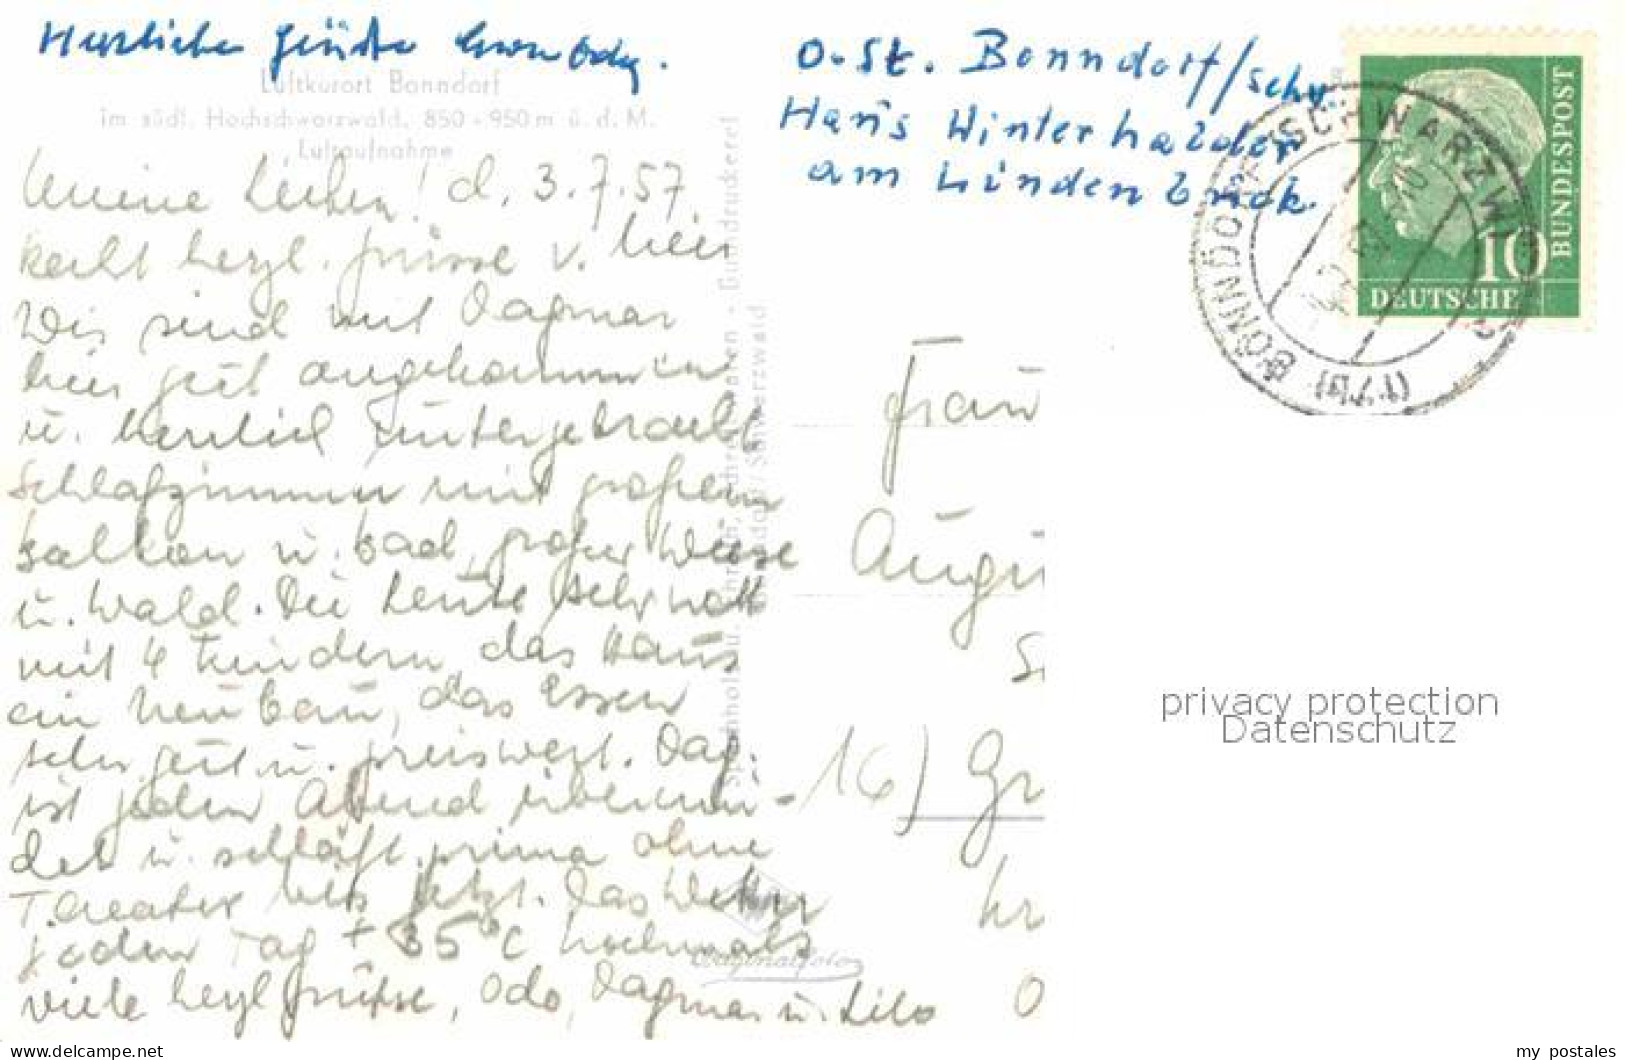 Herzliche Grüße
Luftkurort Bonndorf
im südl. Hochschwarzwald, 850 - 950 m ü. d. M.
Luftaufnahme
Meine Lieben! d. 3.7.57
recht herzl. Grüsse v. hier
Wir sind mit Dagmar
hier gut angekommen
u. herrlich untergebracht
Schlafzimmer mit großem
Balkon u. Bad, großer Wiese
u. Wald. Die Leute sehr nett
mit 4 Kindern, das Haus
ein Neubau, das Essen
sehr gut u. preiswert. Dag.
ist jeden Abend
u. schläft prima ohne
Theater bis jetzt. Das Wetter
jeden Tag + 35°C nochmals
viele herzl. Grüsse, Odo, Dagmar u. Lilo
Originalfoto
Bonndorf/Schwarzwald
O-St. Bonndorf/Schw.
Haus Winterhalder
am Lindenbuck.
BONNDORF (SCHWARZW)
(17b)
10
DEUTSCHE
BUNDESPOST
Frau
Augu
16) Gr
privacy protection
Datenschutz
delcampe.net
my_postales